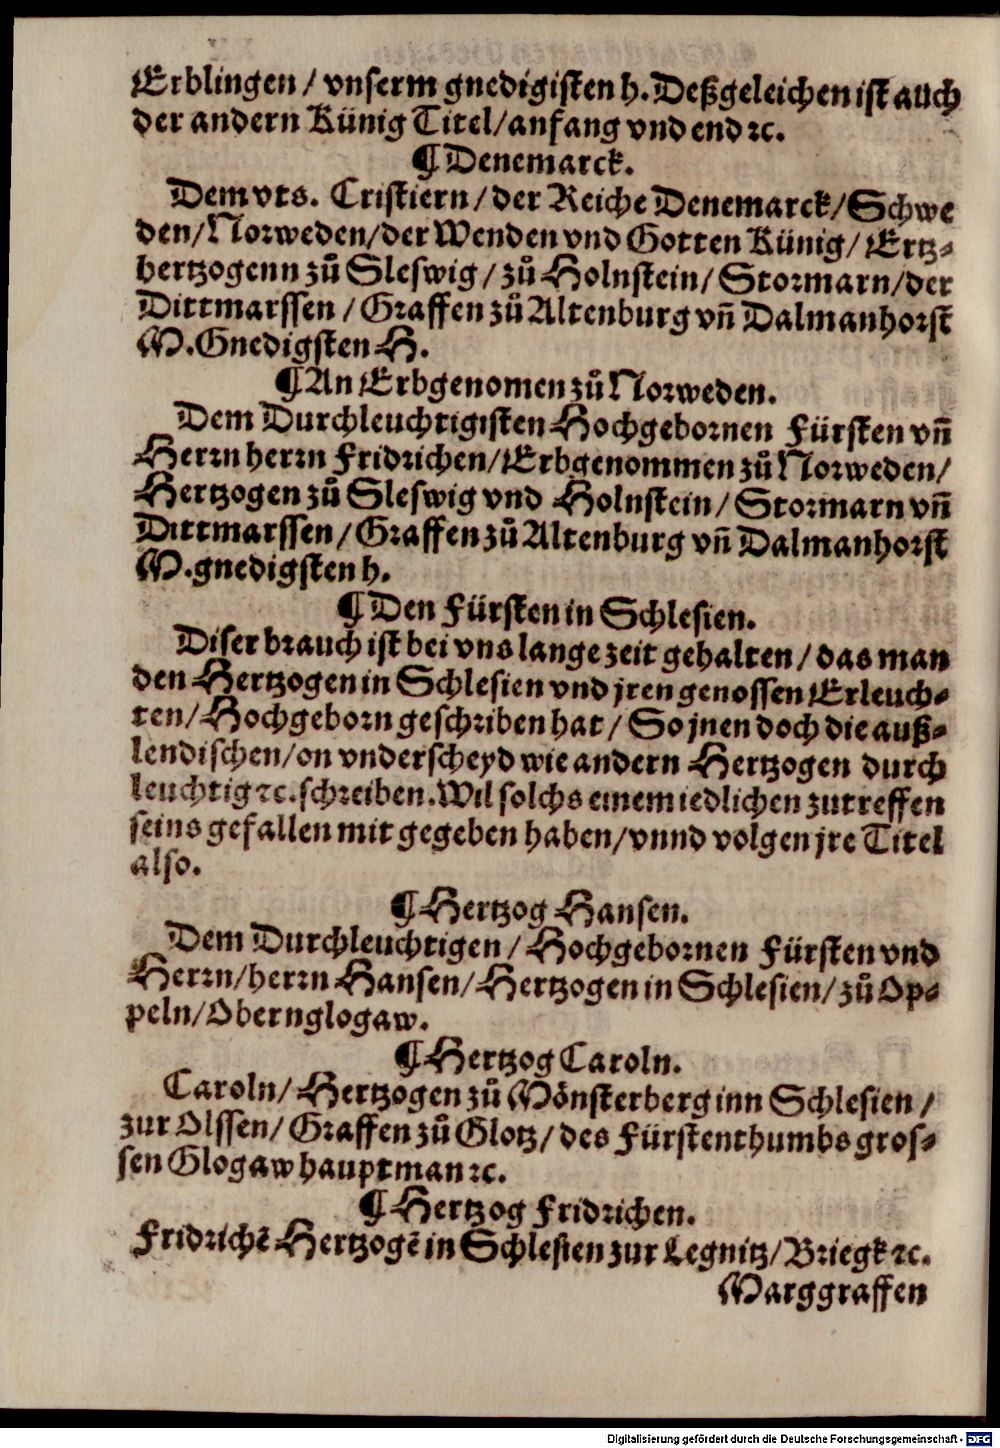 Erblingen / vnserm gnedigisten h. Deßgeleichen ist auch
der andern Künig Titel/anfang vnd end ꝛc.
¶ Denemarck.
Dem vts. Cristiern/der Reiche Denemarck/Schwe
den/Norweden/der Wenden vnd Gotten Künig/Ertz⸗
hertzogenn zů Sleswig/zů Holnstein/Stormarn/der
Dittmarssen / Graffen zů Altenburg vñ Dalmanhorst
M. Gnedigsten H.
¶ An Erbgenomen zů Norweden.
Dem Durchleuchtigisten Hochgebornen Fürsten vñ
Herrn herrn Fridrichen/Erbgenommen zů Norweden/
Hertzogen zů Sleswig vnd Holnstein/Stormarn vñ
Dittmarssen/Graffen zů Altenburg vñ Dalmanhorst
M. gnedigsten h.
¶ Den Fürsten in Schlesien.
Diser brauch ist bei vns lange zeit gehalten/das man
den Hertzogen in Schlesien vnd jren genossen Erleuch⸗
ten/Hochgeborn geschriben hat/So jnen doch die auß⸗
lendischen/on vnderscheyd wie andern Hertzogen durch
leuchtig ꝛc. schreiben. Wil solchs einem iedlichen zutreffen
seins gefallen mit gegeben haben/vnnd volgen jre Titel
also.
¶ Hertzog Hansen.
Dem Durchleuchtigen/Hochgebornen Fürsten vnd
Herrn/herrn Hansen/Hertzogen in Schlesien/zů Op⸗
peln/Obernglogaw.
¶ Hertzog Caroln.
Caroln/Hertzogen zů Mönsterberg inn Schlesien/
zur Olssen/Graffen zů Glotz/des Fürstenthumbs gros⸗
sen Glogaw hauptman ꝛc.
¶ Hertzog Fridrichen.
Fridrichẽ Hertzogẽ in Schlesien zur Legnitz/Briegk ꝛc.
Marggraffen
Digitalisierung gefördert durch die Deutsche Forschungsgemeinschaft - DFG